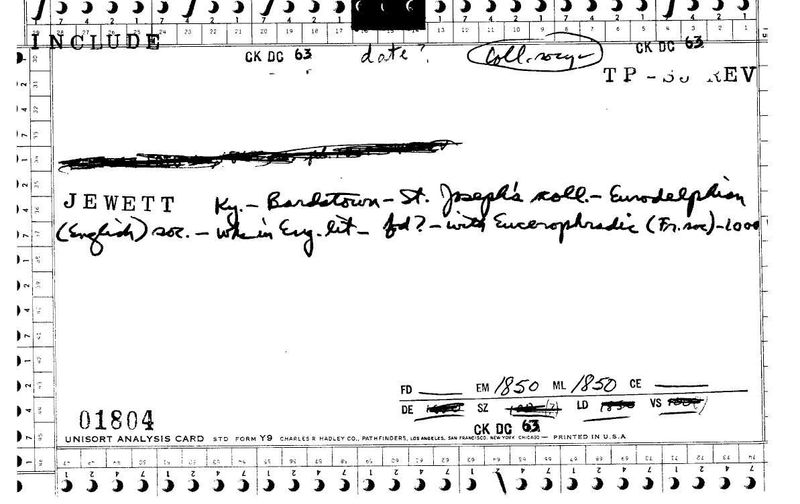 INCLUDE
CK DC 63 date? Coll. socys CK DC 63
TP - SJ REV
JEWETT Ky. - Bardstown - St. Joseph's coll. - Eurodelphian
(English) soc. - wks in Eng. lit - fd? - with Eucerophradic (Fr. soc) - 1000
FD EM 1850 ML 1850 CE
DE SZ LD VS
CK DC 63
01804
UNISORT ANALYSIS CARD STD FORM Y9 CHARLES R HADLEY CO., PATHFINDERS, LOS ANGELES, SAN FRANCISCO, NEW YORK CHICAGO — PRINTED IN U.S.A